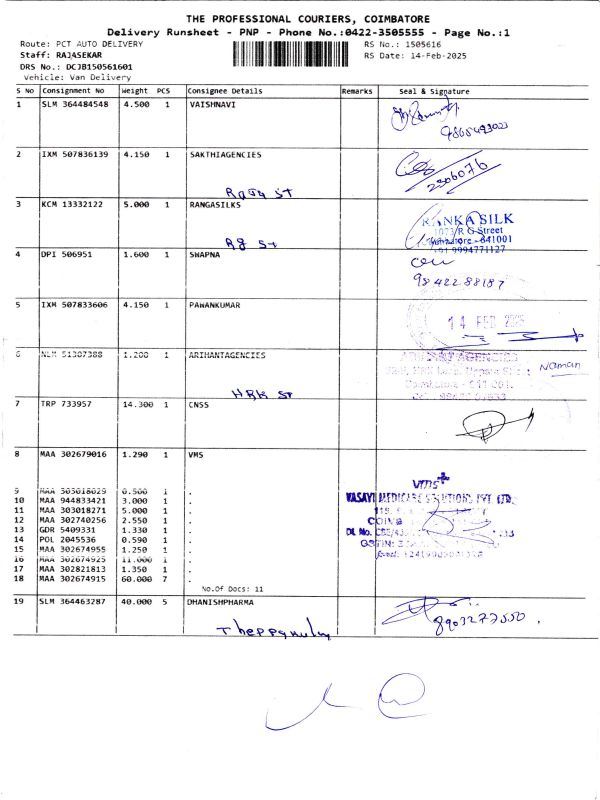 THE PROFESSIONAL COURIERS, COIMBATORE
Delivery Runsheet - PNP - Phone No.:0422-3505555 - Page No.:1
Route: PCT AUTO DELIVERY
RS No.: 1505616
Staff: RAJASEKAR
RS Date: 14-Feb-2025
DRS No.: DCJB150561601
Vehicle: Van Delivery
S No Consignment No Weight PCS Consignee Details Remarks Seal & Signature
1 SLM 364484548 4.500 1 VAISHNAVI
2 IXM 507836139 4.150 1 SAKTHIAGENCIES
2506076
3 KCM 13332122 5.000 1 RANGASILKS
RANKA SILK
1073/R G Street
Coimbatore - 641001
9994771127
Rg St
4 DPI 506951 1.600 1 SWAPNA
98422 88187
5 IXM 507833606 4.150 1 PAWANKUMAR
14 FEB 2025
6 NLM 51307388 1.200 1 ARIHANTAGENCIES
ARIHANT AGENCIES
Naman
HRK St
7 TRP 733957 14.300 1 CNSS
8 MAA 302679016 1.290 1 VMS
vms+
9 MAA 303018029 0.500 1 .
10 MAA 944833421 3.000 1 .
VASAVI MEDICARE SOLUTIONS PVT LTD.
11 MAA 303018271 5.000 1 .
12 MAA 302740256 2.550 1 .
13 GDR 5409331 1.330 1 .
14 POL 2045536 0.590 1 .
15 MAA 302674955 1.250 1 .
16 MAA 302674925 11.000 1 .
17 MAA 302821813 1.350 1 .
18 MAA 302674915 60.000 7 .
No.Of Docs: 11
19 SLM 364463287 40.000 5 DHANISHPHARMA
8903277550